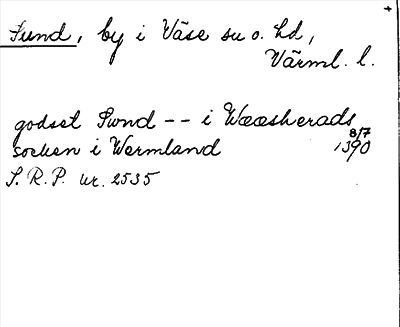 Sund, by i Väse su o. hd,
Värml. l.
godset Swnd -- i Wææsherads
socken i Wermland 8/7 1390
S. R. P. nr. 2535